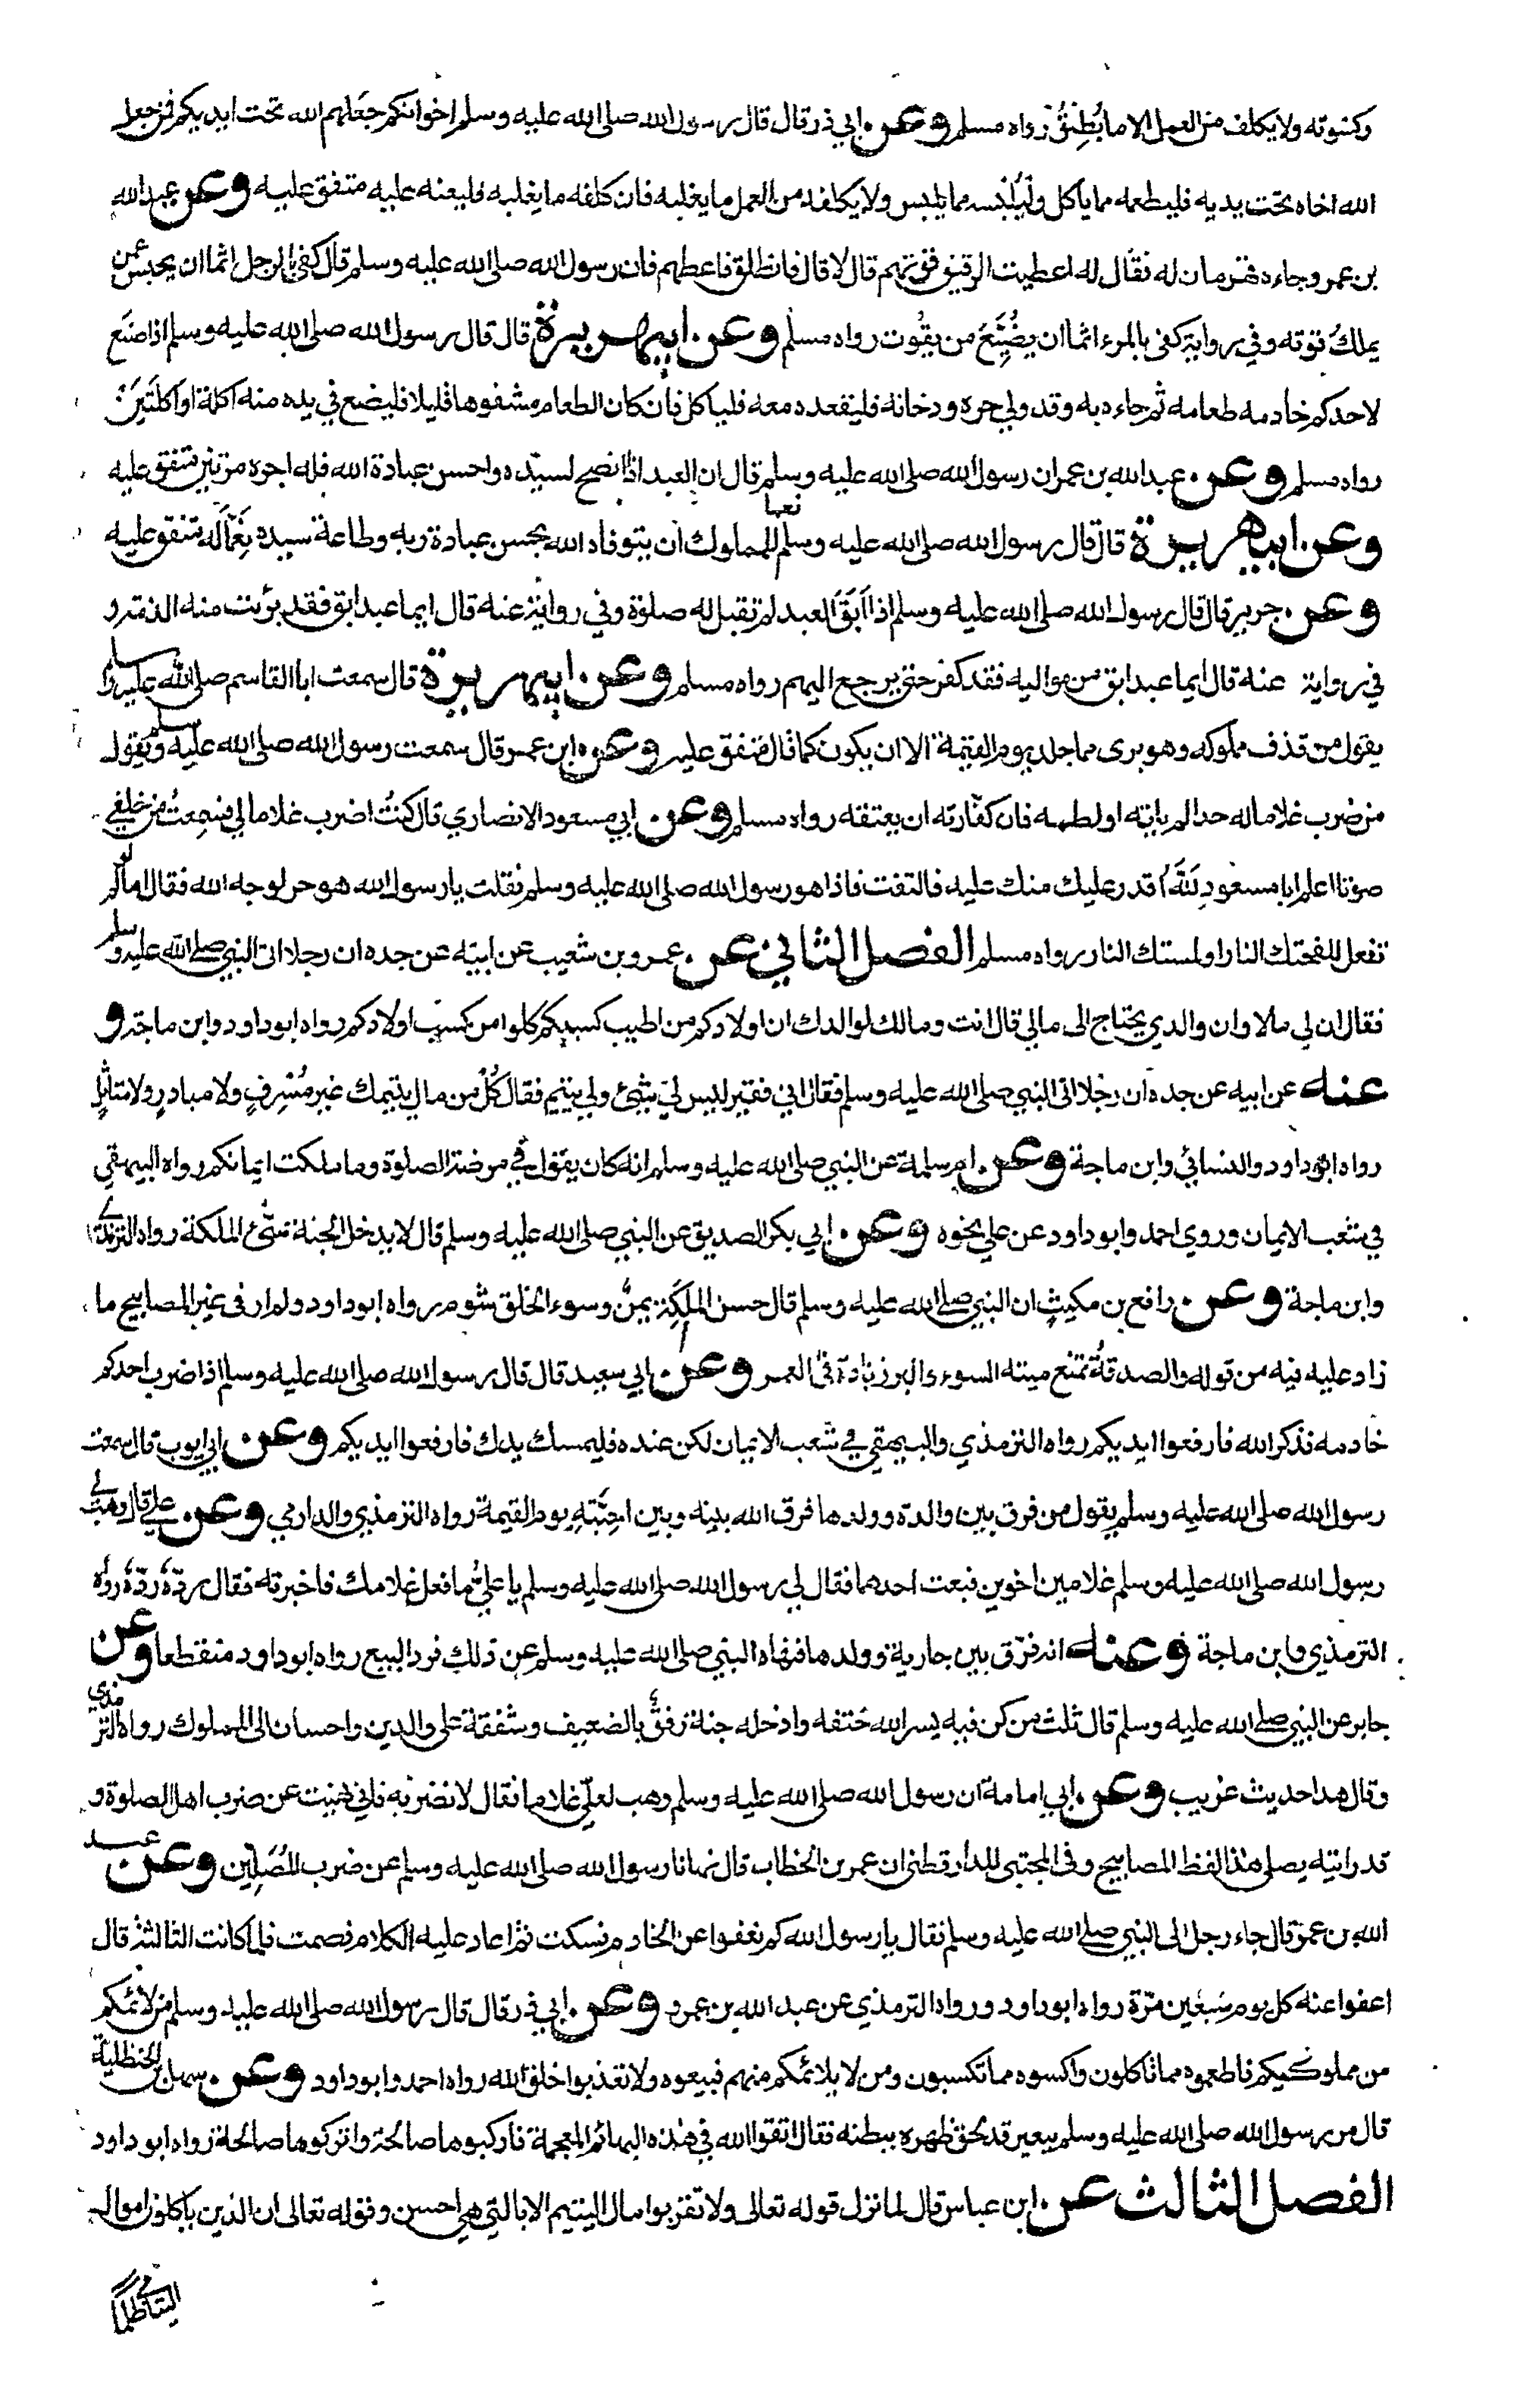 وكسوته ولا يكلف من العمل الا ما يُطِيقُ رواه مسلم وعن ابي ذر قال قال رسول الله صلى الله عليه وسلم اخوانكم جعلهم الله تحت ايديكم فمن جعل
الله اخاه تحت يديه فليطعمه مما ياكل وليُلْبِسه مما يلبس ولا يكلفه من العمل ما يغلبه فان كلفه ما يغلبه فليعنه عليه متفق عليه وعن عبد الله
بن عمرو جاءه قهرمان له فقال له اعطيت الرقيق قوتهم قال لا قال فانطلق فاعطهم فان رسول الله صلى الله عليه وسلم قال كفى بالرجل اثما ان يحبس عمن
يملك قوته وفي رواية كفى بالمرء اثما ان يضيّعَ من يقُوت رواه مسلم وعن ابي هريرة قال قال رسول الله صلى الله عليه وسلم اذا صنَع
لاحدكم خادمه طعامه ثم جاءه به وقد ولي حره ودخانه فليقعده معه فلياكل فان كان الطعام مشفوها قليلا فليضع في يده منه اكلة او اكلتين
رواه مسلم وعن عبد الله بن عمر ان رسول الله صلى الله عليه وسلم قال ان العبد اذا نصح لسيّده واحسن عبادة الله فله اجره مرتين متفق عليه
وعن ابي هريرة قال قال رسول الله صلى الله عليه وسلم نعما للمملوك ان يتوفاه الله بحسن عبادة ربه وطاعة سيده نِعِمَّا له متفق عليه
وعن جرير قال قال رسول الله صلى الله عليه وسلم اذا اَبَقَ العبد لم تقبل له صلوة وفي رواية عنه قال ايما عبد ابق فقد برئت منه الذمة و
في رواية عنه قال ايما عبد ابق من مواليه فقد كفر حتى يرجع اليهم رواه مسلم وعن ابي هريرة قال سمعت ابا القاسم صلى الله عليه وسلم
يقول من قذف مملوكه وهو برى مما جلد يوم القيمة الا ان يكون كما قال متفق عليه وعن ابن عمر قال سمعت رسول الله صلى الله عليه وسلم يقول
من ضرب غلاما له حدا لم ياته او لطمه فان كفارته ان يعتقه رواه مسلم وعن ابي مسعود الانصاري قال كنتُ اضرب غلاما لي فسمعتُ من خلفي
صوتا اعلم ابا مسعود لَلّٰهُ اقدر عليك منك عليه فالتفت فاذا هو رسول الله صلى الله عليه وسلم فقلت يا رسول الله هو حر لوجه الله فقال اما لو لم
تفعل للفحتك النار او لمستك النار رواه مسلم الفصل الثاني عن عمرو بن شعيب عن ابيه عن جده ان رجلا اتى النبي صلى الله عليه وسلم
فقال ان لي مالا وان والدي يحتاج الى مالي قال انت ومالك لوالدك ان اولادكم من اطيب كسبكم كلوا من كسب اولادكم رواه ابو داود وابن ماجة و
عنه عن ابيه عن جده ان رجلا اتى النبي صلى الله عليه وسلم فقال اني فقير ليس لي شئ ولي يتيم فقال كُلْ من مال يتيمك غير مُسْرِفٍ ولا مبادرٍ ولا متاثلٍ
رواه ابو داود والنسائي وابن ماجة وعن ام سلمة عن النبي صلى الله عليه وسلم انه كان يقول في مرضه الصلوة وما ملكت ايمانكم رواه البيهقي
في شعب الايمان وروى احمد وابو داود عن علي نحوه وعن ابي بكر الصديق عن النبي صلى الله عليه وسلم قال لا يدخل الجنة سيّئ الملكة رواه الترمذي
وابن ماجة وعن رافع بن مكيث ان النبي صلى الله عليه وسلم قال حسن الملَكة يمنٌ وسوء الخلق شوم رواه ابو داود ولم ار في غير المصابيح ما
زاد عليه فيه من قوله والصدقةُ تمنع ميتة السوء والبر زيادة في العمر وعن ابي سعيد قال قال رسول الله صلى الله عليه وسلم اذا ضرب احدكم
خادمه فذكر الله فارفعوا ايديكم رواه الترمذي والبيهقي في شعب الايمان لكن عنده فليمسك بدل فارفعوا ايديكم وعن ابي ايوب قال سمعت
رسول الله صلى الله عليه وسلم يقول من فرق بين والدة وولدها فرق الله بينه وبين احِبَّتِهِ يوم القيمة رواه الترمذي والدارمي وعن علي قال وهب لي
رسول الله صلى الله عليه وسلم غلامين اخوين فبعت احدهما فقال لي رسول الله صلى الله عليه وسلم يا عليُّ ما فعل غلامك فاخبرته فقال ردّهُ ردّهُ رواه
الترمذي وابن ماجة وعنه انه فرّق بين جارية وولدها فنهاه النبي صلى الله عليه وسلم عن ذلك فرد البيع رواه ابو داود منقطعا وعن
جابر عن النبي صلى الله عليه وسلم قال ثلث من كن فيه يسر الله حَتفه وادخله جنته رِفقٌ بالضعيف وشفقة على الوالدين واحسان الى المملوك رواه الترمذي
وقال هذا حديث غريب وعن ابي امامة ان رسول الله صلى الله عليه وسلم وهب لعليّ غلاما فقال لا تضربه فاني نهيت عن ضرب اهل الصلوة و
قد رايته يصلي هذا لفظ المصابيح وفي المجتبى للدارقطني ان عمر بن الخطاب قال نهانا رسول الله صلى الله عليه وسلم عن ضرب المُصَلِّين وعن عبد
الله بن عمر قال جاء رجل الى النبي صلى الله عليه وسلم فقال يا رسول الله كم نعفوا عن الخادم فسكت ثم اعاد عليه الكلام فصمت فلما كانت الثالثة قال
اعفوا عنه كل يوم سَبعين مرّة رواه ابو داود ورواه الترمذي عن عبد الله بن عمرو وعن ابي ذر قال قال رسول الله صلى الله عليه وسلم من لائمكم
من مملوكيكم فاطعموه مما تاكلون واكسوه مما تكسون ومن لا يلائمكم منهم فبيعوه ولا تعذبوا خلق الله رواه احمد وابو داود وعن سهل بن الحنظلية
قال مر رسول الله صلى الله عليه وسلم ببعير قد لحق ظهره ببطنه فقال اتقوا الله في هذه البهائم المعجمة فاركبوها صالحة واتركوها صالحة رواه ابو داود
الفصل الثالث عن ابن عباس قال لما نزل قوله تعالى ولا تقربوا مال اليتيم الا بالتي هي احسن وقوله تعالى ان الذين ياكلون اموال
اليتامى ظلما